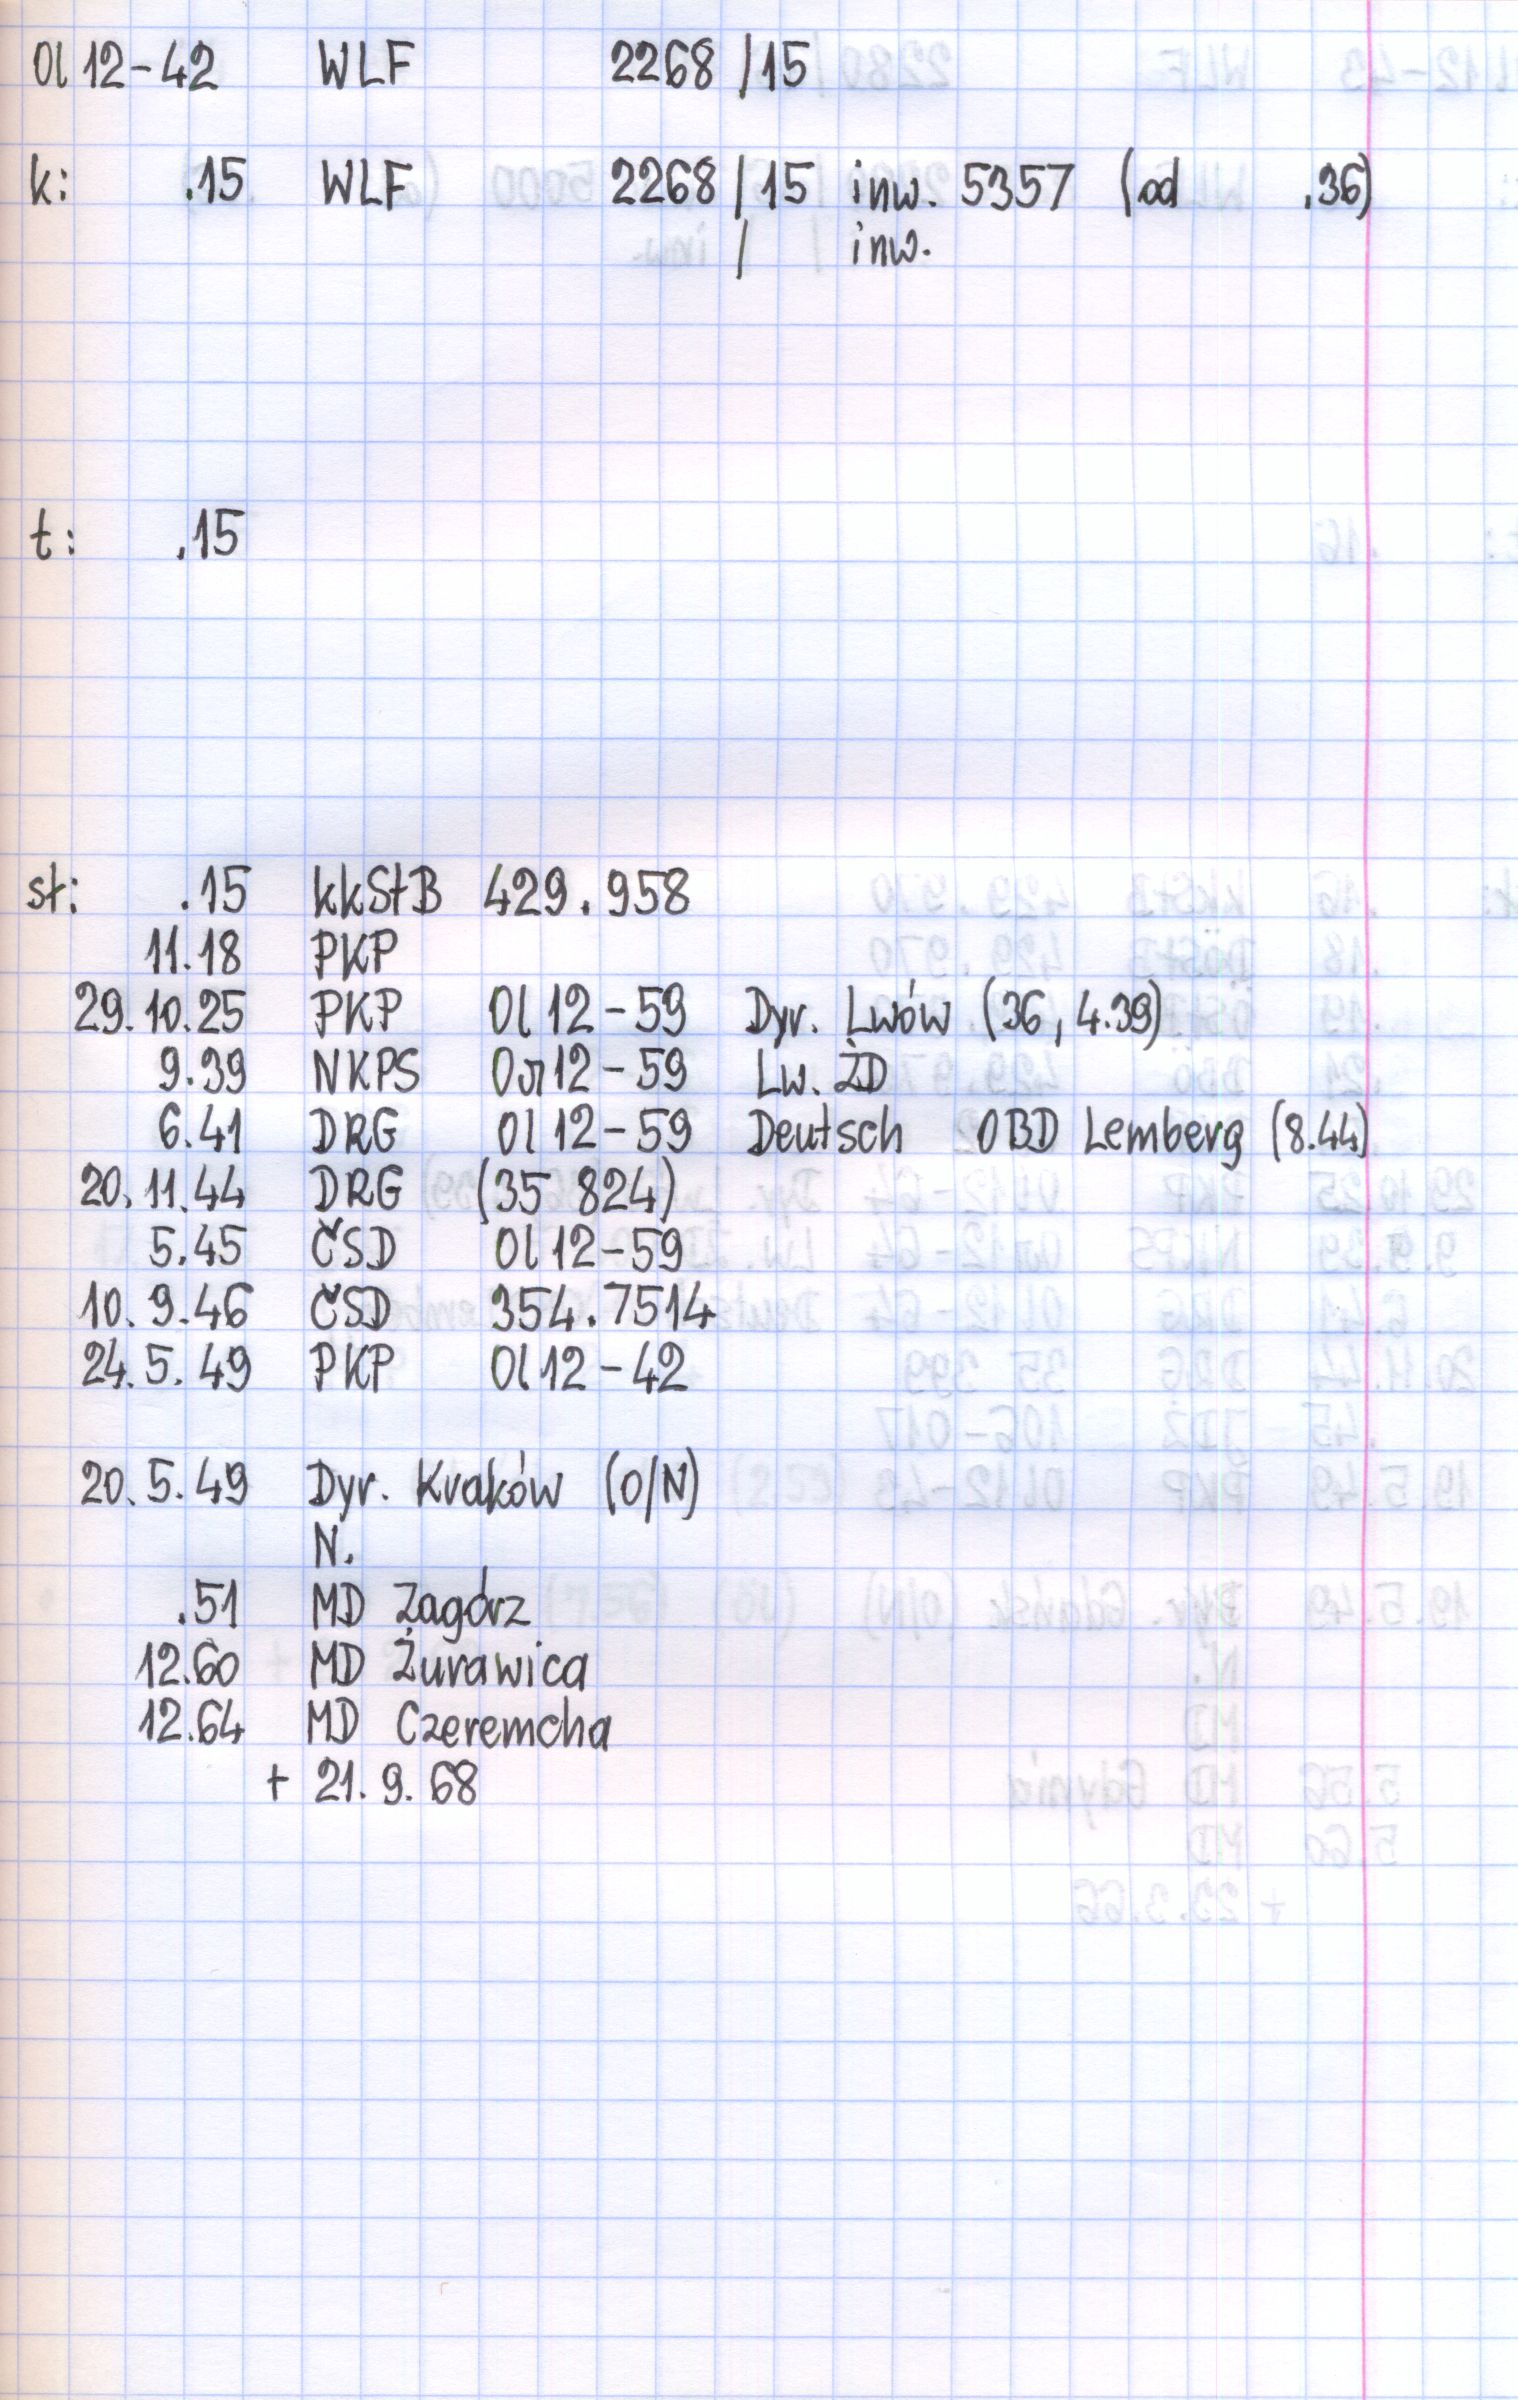 Ol 12-42 WLF 2268/15
k: .15 WLF 2268/15 inw. 5357 (od .36)
/ inw.
t: .15
st: .15 kkStB 429.958
11.18 PKP
29.10.25 PKP Ol 12-59 Dyr. Lwów (36, 4.39)
9.39 NKPS Ол 12-59 Lw. ŻD
6.41 DRG Ol 12-59 Deutsch OBD Lemberg (8.44)
20.11.44 DRG (35 824)
5.45 ČSD Ol 12-59
10.9.46 ČSD 354.7514
24.5.49 PKP Ol 12-42
20.5.49 Dyr. Kraków (O/N)
N.
.51 MD Zagórz
12.60 MD Żurawica
12.64 MD Czeremcha
+ 21.9.68